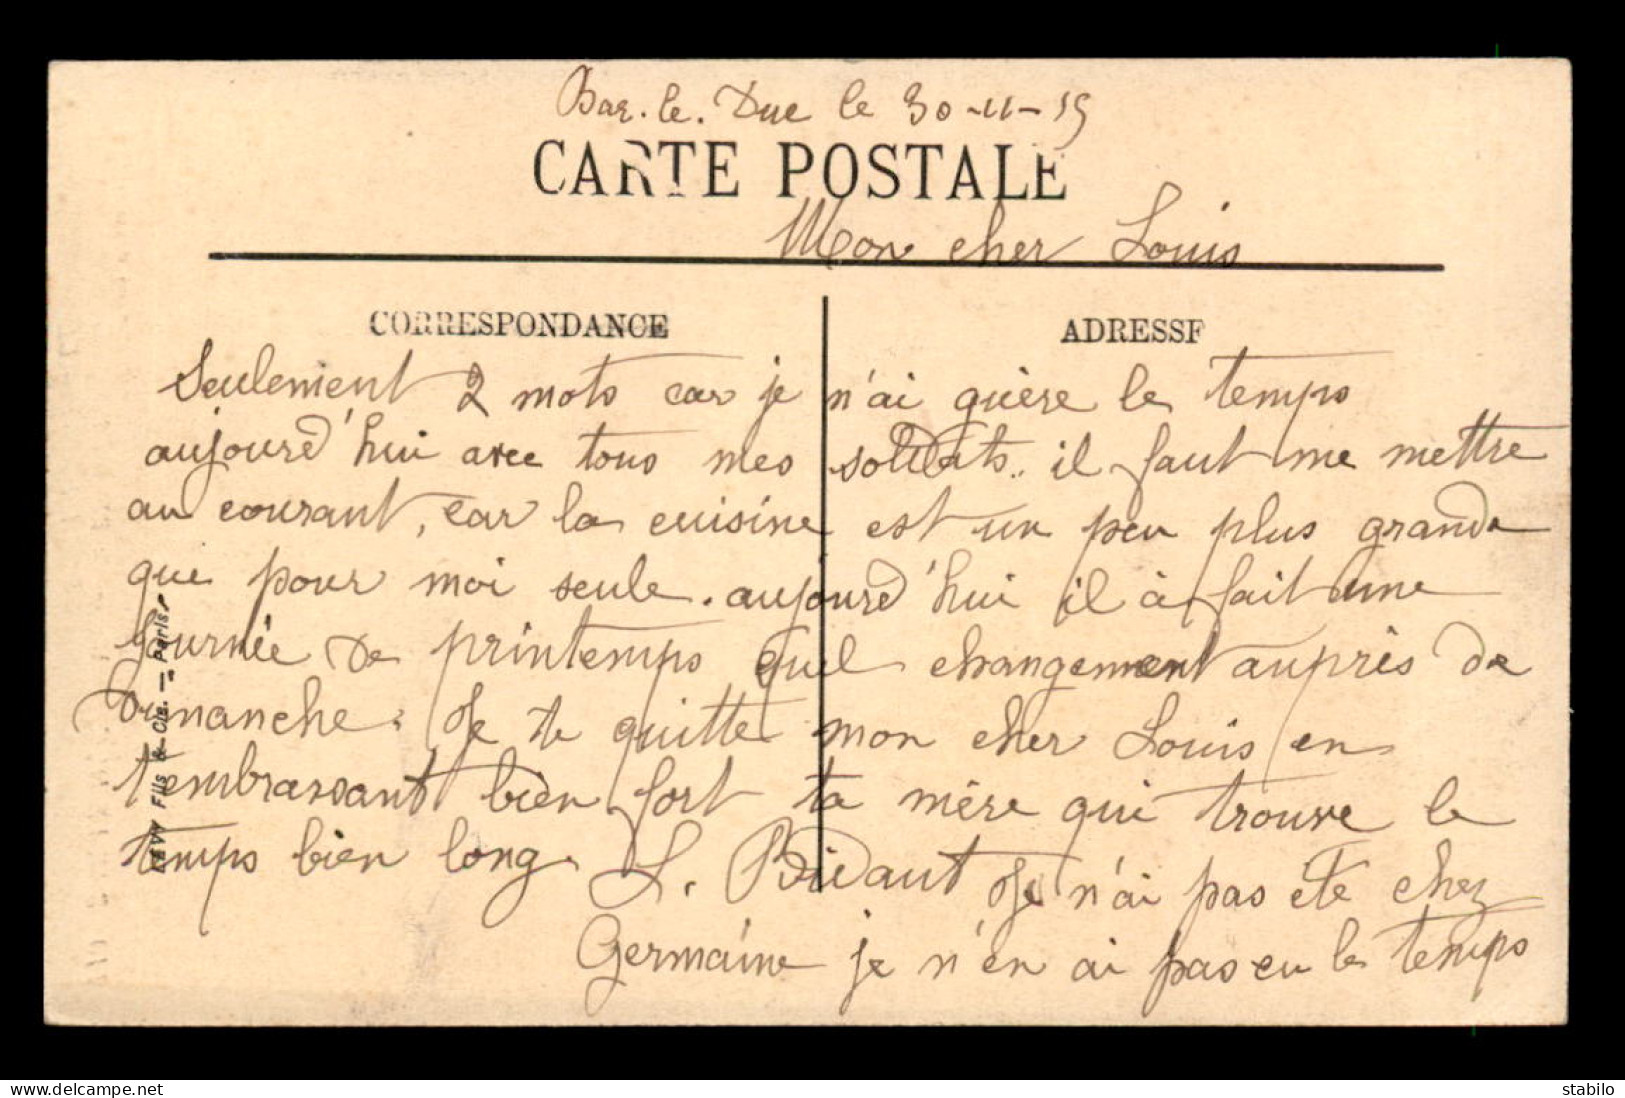 Bar. le. Duc le 30-11-15
CARTE POSTALE
Mon cher Louis
CORRESPONDANCE
ADRESSE
Seulement 2 mots car je n'ai guère le temps
aujourd'hui avec tous mes soldats.. il faut me mettre
au courant, car la cuisine est un peu plus grande
que pour moi seule. aujourd'hui il à fait une
journée de printemps quel changement auprès de
Dimanche. Je te quitte mon cher Louis en
t'embrassant bien fort ta mère qui trouve le
temps bien long. L. Bidaut Je n'ai pas été chez
Germaine je n'en ai pas eu le temps
LEVY Fils & Cie. - Paris.
delcampe.net
stabilo